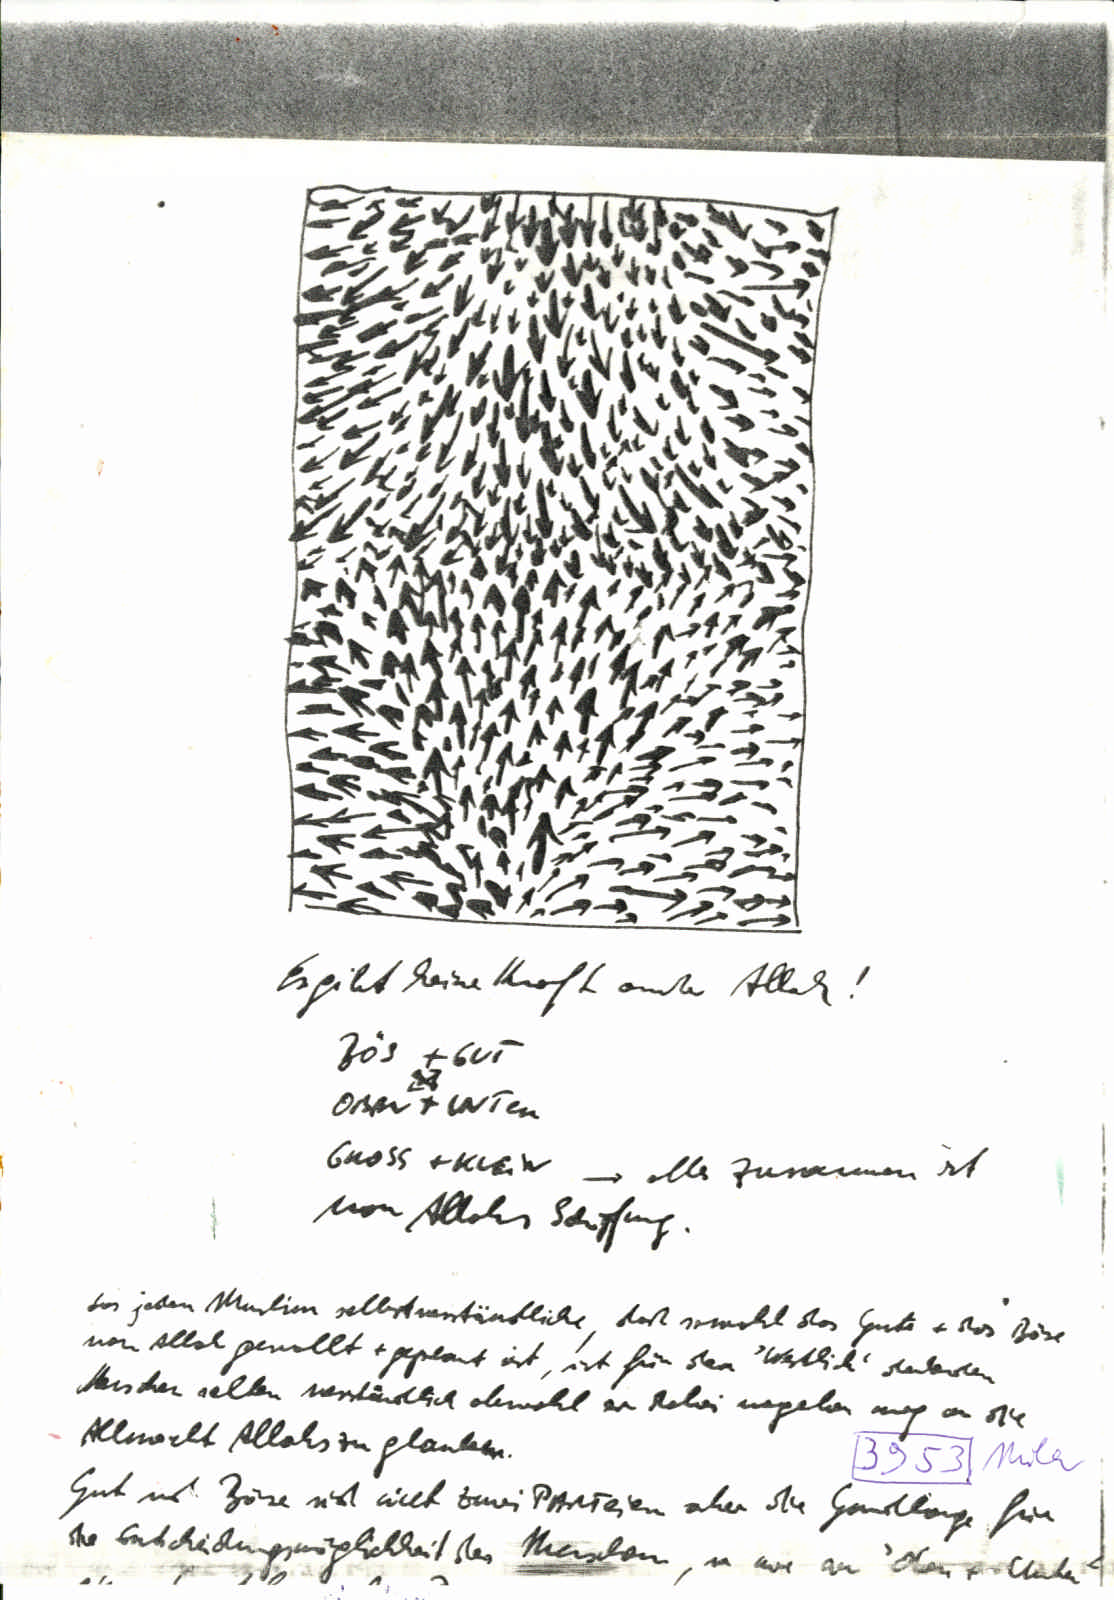 Es gibt keine Kraft außer Allah!
BÖS + GUT
OBEN + UNTEN
GROSS + KLEIN → alles zusammen ist
von Allahs Schöpfung.
das jedem Muslim selbstverständliche, daß sowohl das Gute + das Böse
von Allah gewollt + geplant ist, ist für den 'Westlich' denkenden
Menschen selten verständlich obwohl er dabei vorgeben mag an die
Allmacht Allahs zu glauben.
3953
Gut und Böse sind nicht zwei PARTEIEN aber die Grundlage für
die Entscheidungsmöglichkeit des Menschen, so wie er 'Oben +